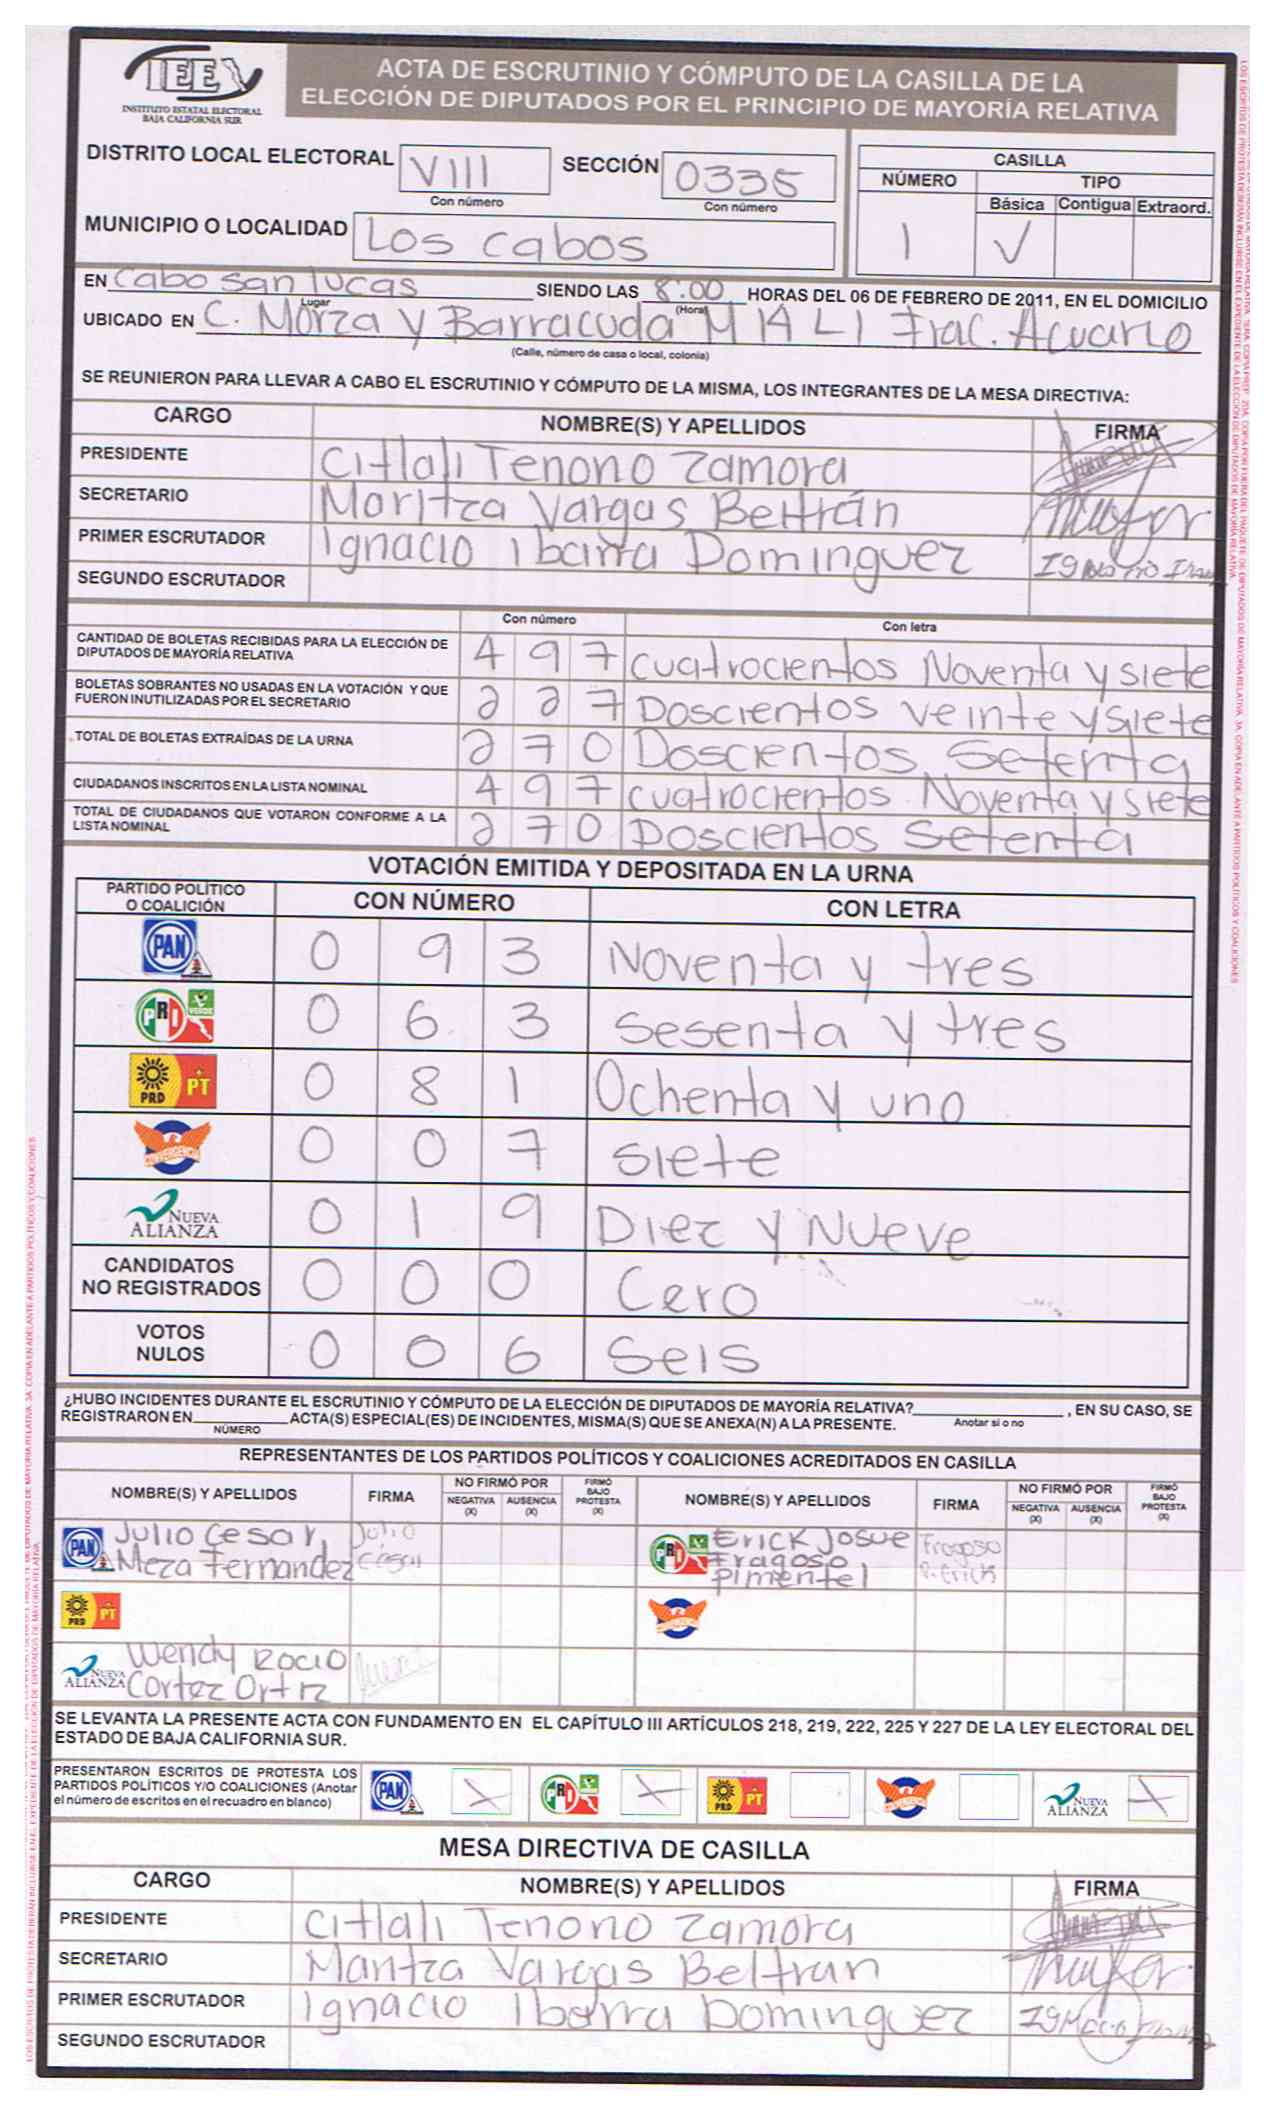 IEE
INSTITUTO ESTATAL ELECTORAL
BAJA CALIFORNIA SUR
ACTA DE ESCRUTINIO Y CÓMPUTO DE LA CASILLA DE LA
ELECCIÓN DE DIPUTADOS POR EL PRINCIPIO DE MAYORÍA RELATIVA
DISTRITO LOCAL ELECTORAL VIII SECCIÓN 0335
Con número Con número
CASILLA
NÚMERO TIPO
Básica Contigua Extraord.
1 ✓
MUNICIPIO O LOCALIDAD Los Cabos
EN Cabo San Lucas SIENDO LAS 8:00 HORAS DEL 06 DE FEBRERO DE 2011, EN EL DOMICILIO
Lugar (Hora)
UBICADO EN C. Morza y Barracuda M 14 L1 Frac. Acuario
(Calle, número de casa o local, colonia)
SE REUNIERON PARA LLEVAR A CABO EL ESCRUTINIO Y CÓMPUTO DE LA MISMA, LOS INTEGRANTES DE LA MESA DIRECTIVA:
CARGO NOMBRE(S) Y APELLIDOS FIRMA
PRESIDENTE Citlali Tenono Zamora
SECRETARIO Maritza Vargas Beltrán
PRIMER ESCRUTADOR Ignacio Ibarra Dominguez
SEGUNDO ESCRUTADOR
Con número Con letra
CANTIDAD DE BOLETAS RECIBIDAS PARA LA ELECCIÓN DE
DIPUTADOS DE MAYORÍA RELATIVA 4 9 7 Cuatrocientos Noventa y siete
BOLETAS SOBRANTES NO USADAS EN LA VOTACIÓN Y QUE
FUERON INUTILIZADAS POR EL SECRETARIO 2 2 7 Doscientos veinte y siete
TOTAL DE BOLETAS EXTRAÍDAS DE LA URNA 2 7 0 Doscientos Setenta
CIUDADANOS INSCRITOS EN LA LISTA NOMINAL 4 9 7 Cuatrocientos Noventa y siete
TOTAL DE CIUDADANOS QUE VOTARON CONFORME A LA
LISTA NOMINAL 2 7 0 Doscientos Setenta
VOTACIÓN EMITIDA Y DEPOSITADA EN LA URNA
PARTIDO POLÍTICO
O COALICIÓN CON NÚMERO CON LETRA
PAN 0 9 3 Noventa y tres
PRI VERDE 0 6 3 Sesenta y tres
PRD PT 0 8 1 Ochenta y uno
CONVERGENCIA 0 0 7 Siete
NUEVA ALIANZA 0 1 9 Diez y Nueve
CANDIDATOS
NO REGISTRADOS 0 0 0 Cero
VOTOS
NULOS 0 0 6 Seis
¿HUBO INCIDENTES DURANTE EL ESCRUTINIO Y CÓMPUTO DE LA ELECCIÓN DE DIPUTADOS DE MAYORÍA RELATIVA? , EN SU CASO, SE
Anotar si o no
REGISTRARON EN ACTA(S) ESPECIAL(ES) DE INCIDENTES, MISMA(S) QUE SE ANEXA(N) A LA PRESENTE.
NÚMERO
REPRESENTANTES DE LOS PARTIDOS POLÍTICOS Y COALICIONES ACREDITADOS EN CASILLA
NOMBRE(S) Y APELLIDOS FIRMA NO FIRMÓ POR NEGATIVA (X) AUSENCIA (X) FIRMÓ BAJO PROTESTA (X) NOMBRE(S) Y APELLIDOS FIRMA NO FIRMÓ POR NEGATIVA (X) AUSENCIA (X) FIRMÓ BAJO PROTESTA (X)
PAN Julio Cesar Meza Fernandez Julio César
PRI Erick Josue Fragoso Pimentel Fragoso P. Erick
PRD PT
CONVERGENCIA
NUEVA ALIANZA Wendy Rocio Cortez Ortiz
SE LEVANTA LA PRESENTE ACTA CON FUNDAMENTO EN EL CAPÍTULO III ARTÍCULOS 218, 219, 222, 225 Y 227 DE LA LEY ELECTORAL DEL
ESTADO DE BAJA CALIFORNIA SUR.
PRESENTARON ESCRITOS DE PROTESTA LOS
PARTIDOS POLÍTICOS Y/O COALICIONES (Anotar
el número de escritos en el recuadro en blanco) PAN X PRI X PRD PT CONVERGENCIA NUEVA ALIANZA X
MESA DIRECTIVA DE CASILLA
CARGO NOMBRE(S) Y APELLIDOS FIRMA
PRESIDENTE Citlali Tenono Zamora
SECRETARIO Maritza Vargas Beltran
PRIMER ESCRUTADOR Ignacio Ibarra Dominguez
SEGUNDO ESCRUTADOR